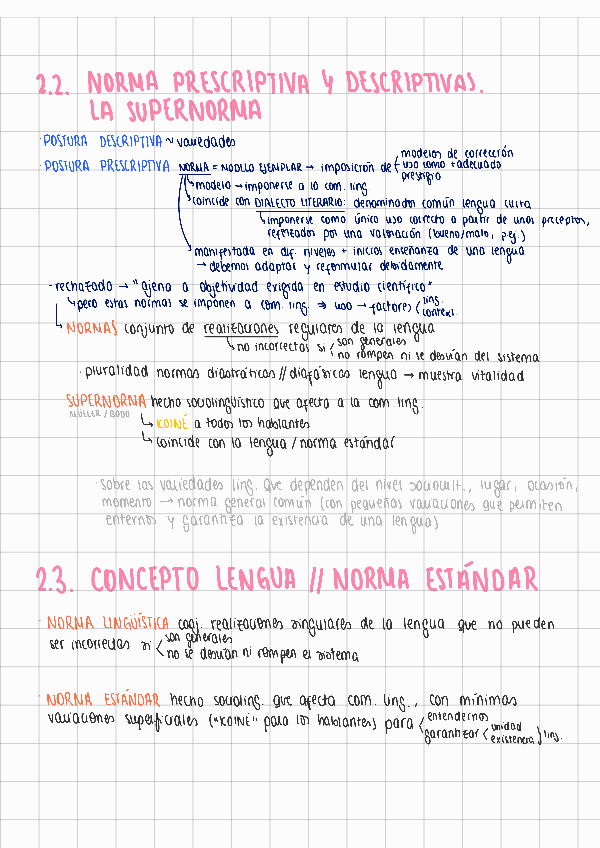 2.2. NORMA PRESCRIPTIVA Y DESCRIPTIVAS.
LA SUPERNORMA
· POSTURA DESCRIPTIVA ~ variedades
· POSTURA PRESCRIPTIVA NORMA = MODELO EJEMPLAR → imposición de modelos de corrección
uso como + adecuado
prestigio
↳ modelo → imponerse a la com. ling
↳ coincide con DIALECTO LITERARIO: denominador común lengua culta
↳ imponerse como único uso correcto a partir de unos preceptos,
reforzados por una valoración (bueno/malo, p.ej.)
manifestada en dif. niveles + inicios enseñanza de una lengua
→ debemos adaptar y reformular debidamente
· rechazado → "ajena a objetividad exigida en estudio científico"
↳ pero estas normas se imponen a com. ling. ⇒ uso → factores ling.
context.
↳ NORMAS conjunto de realizaciones regulares de la lengua
↳ no incorrectas si son generales
no rompen ni se desvían del sistema
· pluralidad normas diastráticas // diafásicas lengua → muestra vitalidad
SUPERNORMA hecho sociolingüístico que afecta a la com ling.
MÜLLER / BODO
↳ KOINÉ a todos los hablantes
↳ coincide con la lengua / norma estándar
· sobre las variedades ling. que dependen del nivel sociocult., lugar, ocasión,
momento → norma general común (con pequeñas variaciones que permiten
enternos y garantiza la existencia de una lengua)
2.3. CONCEPTO LENGUA // NORMA ESTÁNDAR
· NORMA LINGÜÍSTICA conj. realizaciones singulares de la lengua que no pueden
ser incorrectas si son generales
no se desvían ni rompen el sistema
· NORMA ESTÁNDAR hecho socioling. que afecta com. ling., con mínimas
variaciones superficiales ("KOINÉ" para los hablantes) para entendernos
garantizar unidad
existencia ling.